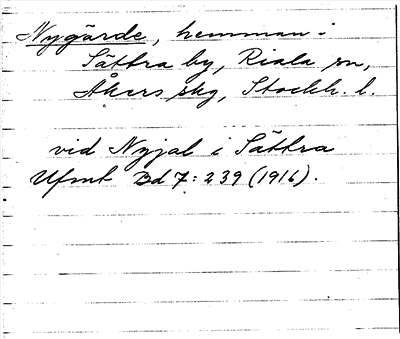 Nygärde, hemman i
Sättra by, Riala sn,
Åkers skg, Stockh. l.
vid Nyjal i Sättra
Ufmt Bd 7: 239 (1916).